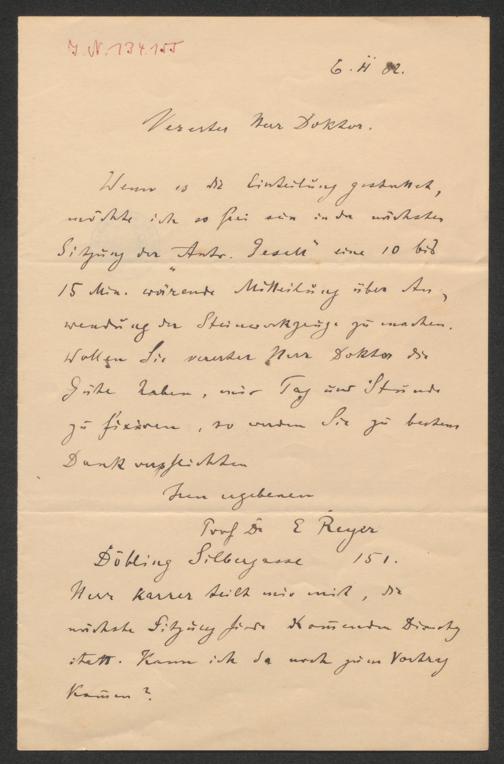 J. N. 134.155
6. II 82.
Vererter Herr Doktor.
Wenn es die Einteilung gestattet,
möchte ich so frei sein in der nächsten
Sitzung der „Antr. Gesell" eine 10 bis
15 Min. wärende Mitteilung über An-
wendung der Steinwerkzeuge zu machen.
Wollen Sie vererter Herr Doktor die
Güte haben, mir Tag und Stunde
zu fixieren, so werden Sie zu bestem
Dank verpflichten
Iren ergebenen
Prof Dr E Reyer
Döbling Silbergasse 151.
Herr Karrer teilt mir mit, die
nächste Sitzung finde kommenden Dienstg
statt. Kann ich da noch zum Vortrag
kommen?